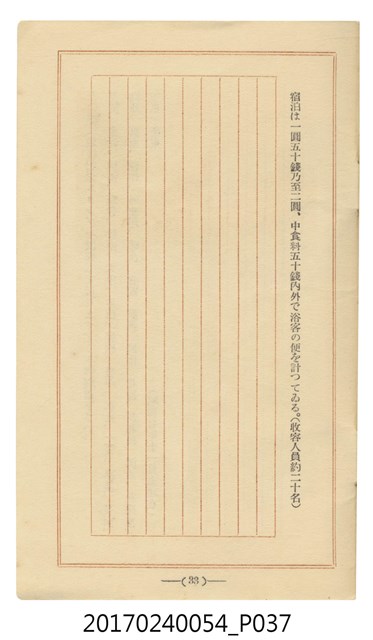 宿泊は一圓五十錢乃至二圓、中食料五十錢內外で浴客の便を計つてゐる。(收容人員約二十名)
(33)
20170240054_P037